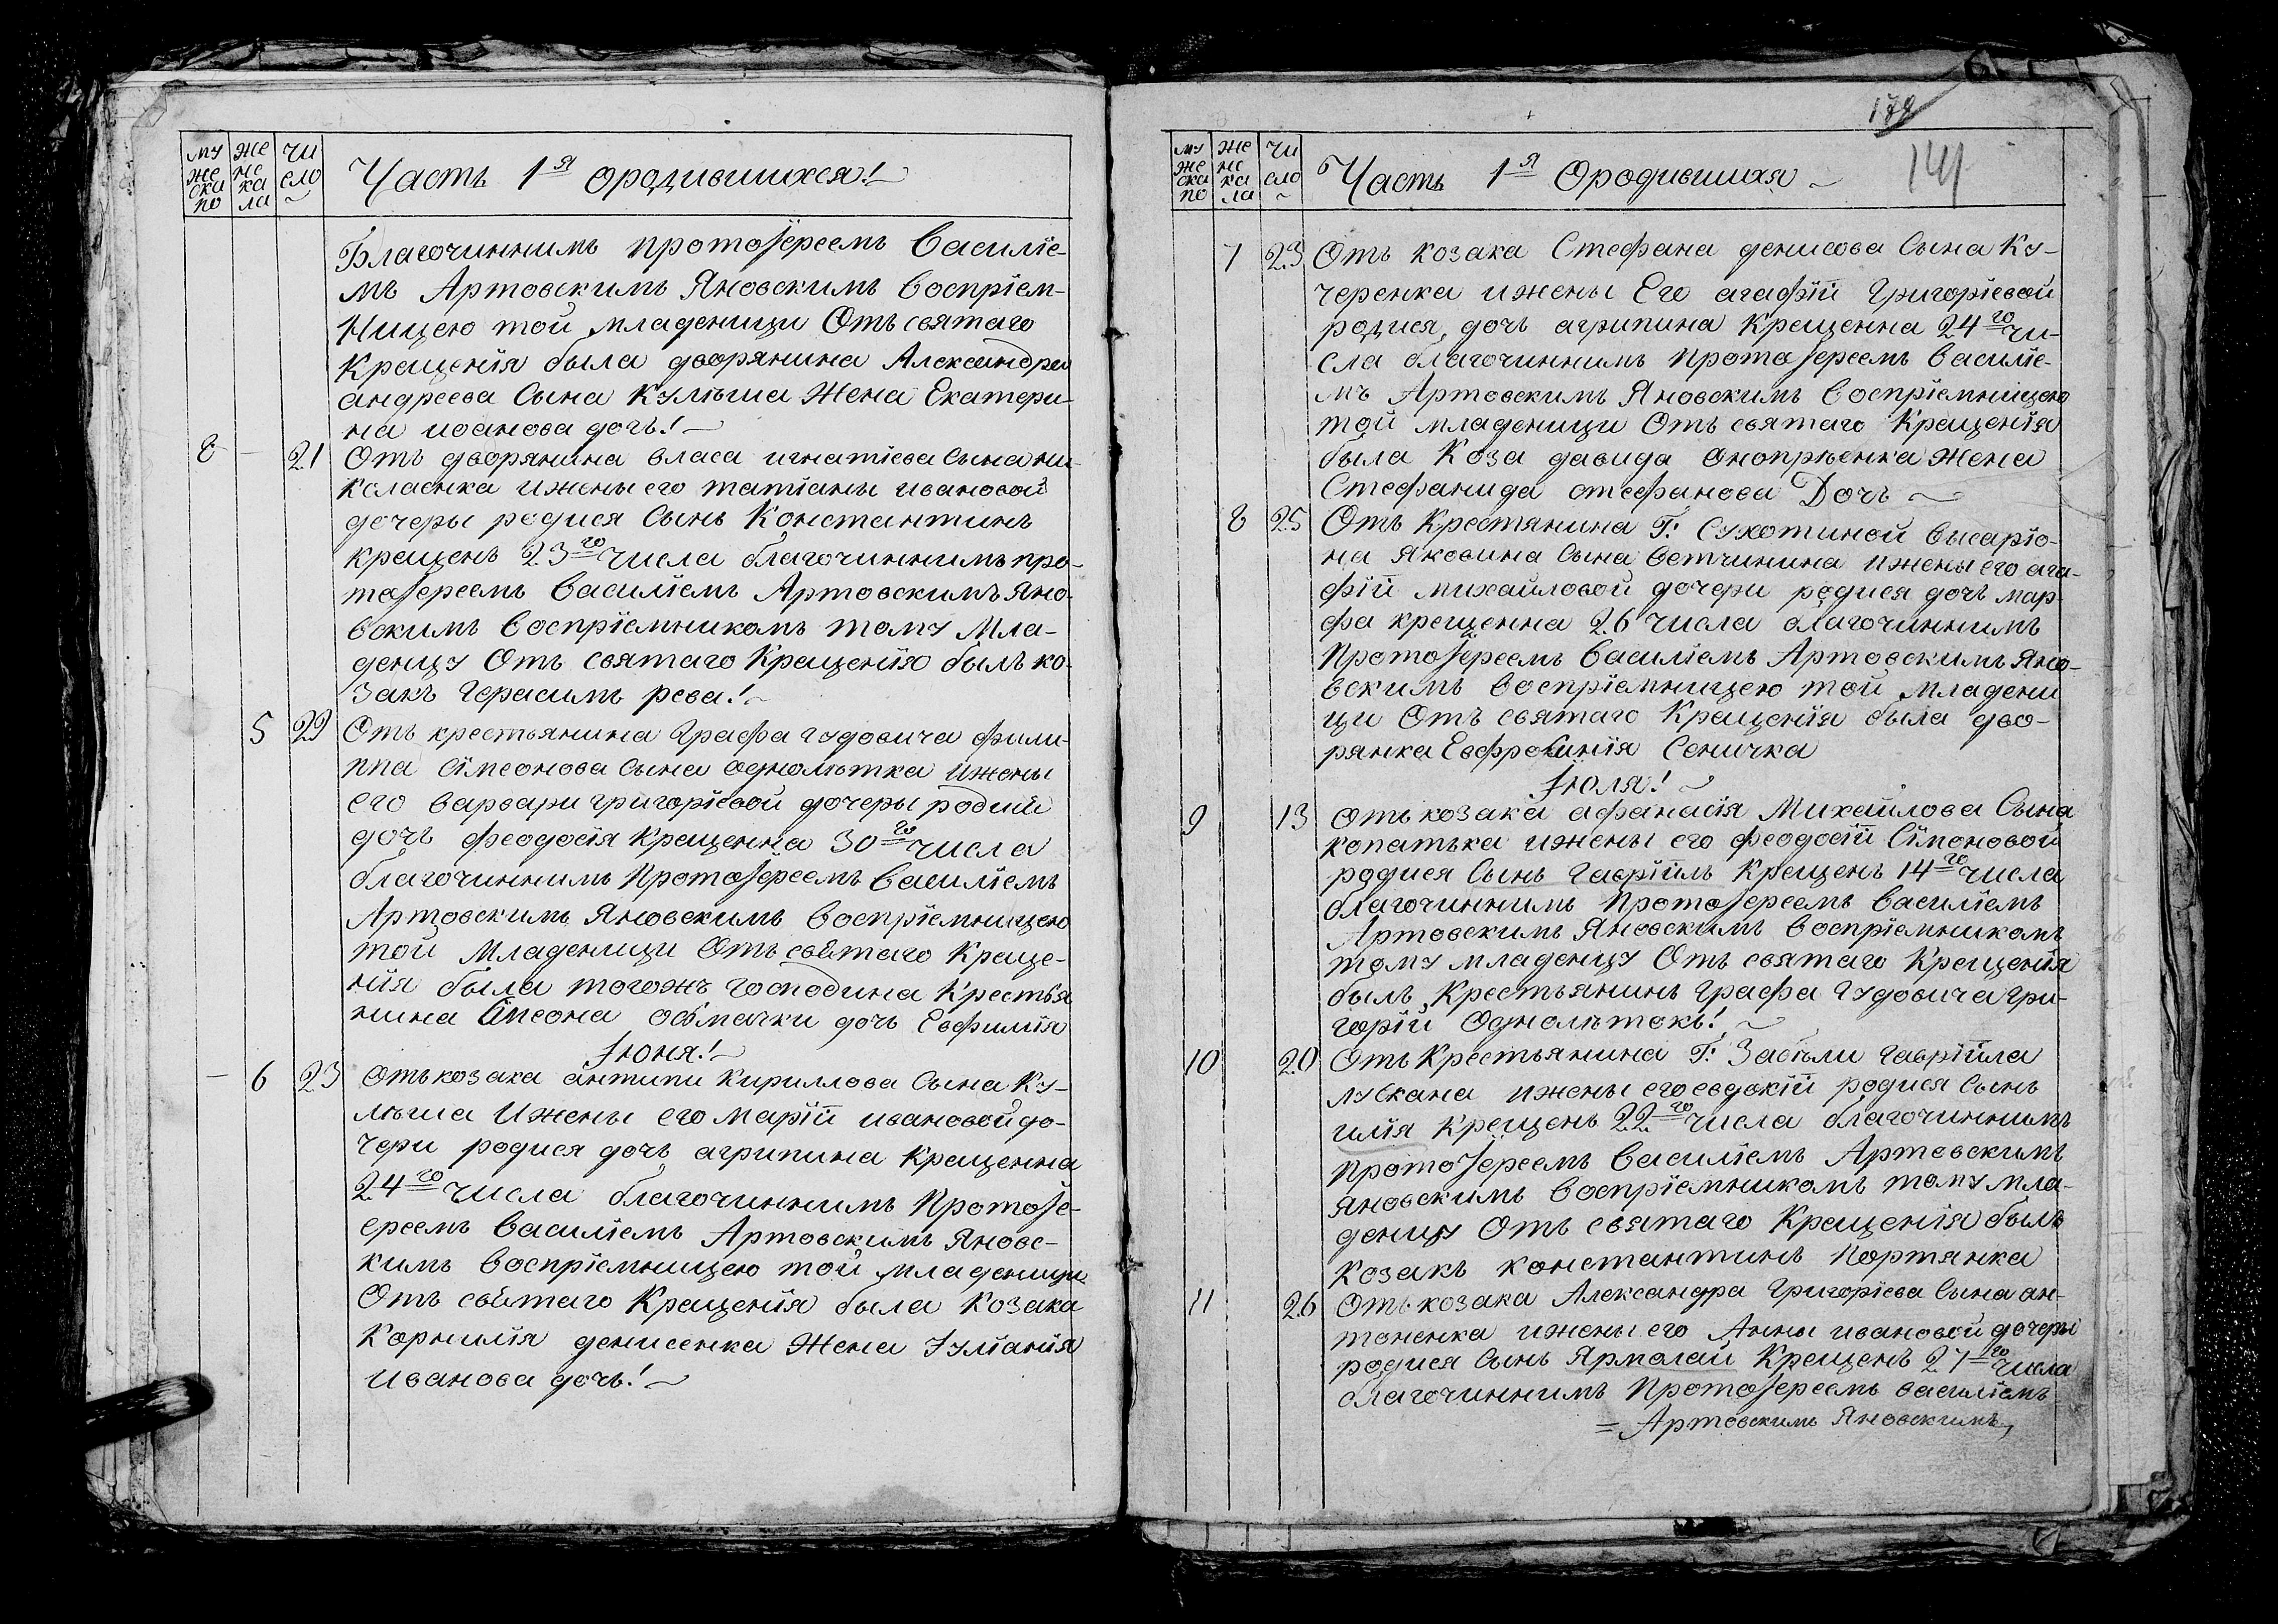 му же чи
же не сло
ски ка
по ла
Часть 1я ородившихся!
Благочиннимъ протоӏереемъ Василіе-
мъ Артовскимъ Яновскимъ воспріем-
Ницею той младеници Отъ святаго
Крещенія была дворянина Александра
андреева Сына Кулѣша Жена Екатери-
на иоанова дочь!
8 – 21 Отъ дворянина власа игнатіева Сына ни-
колаенка ижены его татіаны ивановой
дочеры родися Сынъ Константинъ
крещенъ 23го числа благочиннимъ про-
тоӏереемъ Василіемъ Артовскимъ Яно-
вскимъ воспріемникомъ тому Мла-
денцу Отъ святаго Крещенія былъ ко-
закъ Герасимъ рева!
5 29 Отъ крестьянина Графа гудовича фили-
ппа сімеонова Сына однолѣтка Ижены
его варвари григоріевой дочеры родися
дочь феодосія Крещенна 30го числа
благочиннимъ Протоӏереемъ Василіемъ
Артовскимъ Яновскимъ воспріемницею
той Младеници Отъ святаго Креще-
нія была тогожъ господина Крестья
нина Сімеона дочь Евфимія
Іюня!
– 6 23 Отъ козака антипи Кириллова Сына Ку-
лѣша Ижены его Маріи ивановой до-
чери родися дочь агрипина Крещенна
24го числа благочиннимъ Протоӏе-
ереемъ Василіемъ Артовскимъ Яновс-
кимъ воспріемницею той младеници
Отъ святаго Крещенія была Козака
Корнилія денисенка Жена Іуліанія
Иванова дочь!
178
141
му же чи
же не сло
ски ка
по ла
Часть 1я Ородившихся
7 23 Отъ козака Стефана денисова Сына Ку-
черенка ижены Его агафіи Григоріевой
родися, дочь агрипина Крещенна 24го чи-
сла благочиннимъ Протоӏереемъ Василіе-
мъ Артовскимъ Яновскимъ воспріемницею
той младеници Отъ святаго Крещенія
была Коза давида оноприенка жена
Стефанида стефанова Дочь
8 25 Отъ Крестянина Г: Сухотиной висаріо-
на Яковина Сына ветчинина ижены его ага-
фіи михайловой дочери родися дочь мар-
фа крещенна 26 числа благочиннимъ
Протоӏереемъ Василіемъ Артовскимъ Яно-
вскимъ воспріемницею той младени
ци Отъ святаго Крещенія была дво-
рянка Евфросинія Сеничка
Іюля!
9 13 Отъ козака афанасія Михайлова Сына
копатька ижены его феодосіи Сімоновой
родися Сынъ гавріилъ Крещенъ 14го числа
благочиннимъ Протоӏереемъ Василіемъ
Артовскимъ Яновскимъ воспріемникомъ
тому младенцу Отъ святаго Крещенія
былъ Крестьянинъ графа гудовича гри-
горій Однолѣтокъ!
10 20 Отъ Крестьянина Г: Забѣли гавріила
лускана ижены его евдокіи родися Сынъ
илія Крещенъ 22го числа благочиннимъ
Протоӏереемъ Василіемъ Артовскимъ
Яновскимъ воспріемникомъ тому мла-
денцу Отъ святаго Крещенія былъ
Козакъ константинъ Портянка
11 26 Отъ козака Александра Григоріева Сына ан-
тоненка ижены его Анны ивановой дочеры
родися Сынъ Ярмолай Крещенъ 27го числа
благочиннимъ Протоӏереемъ василіемъ
= Артовскимъ Яновскимъ,